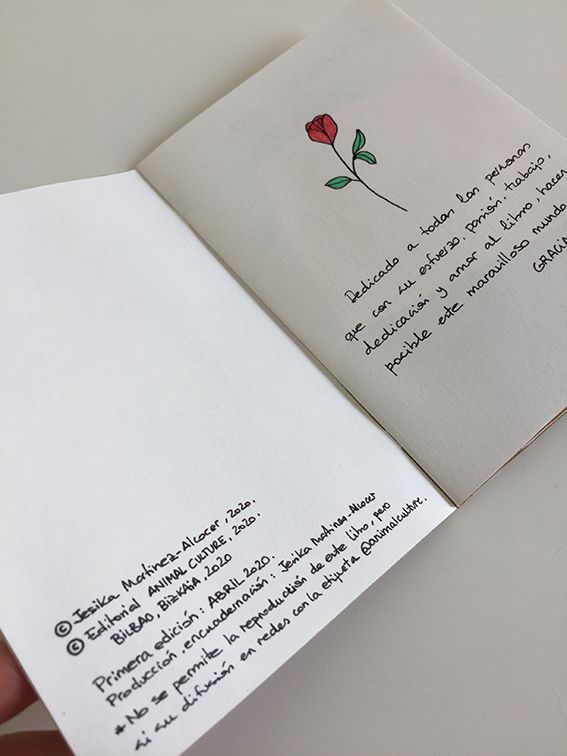 © Jesika Martinez-Alcocer, 2020.
© Editorial ANIMAL CULTURE, 2020.
BILBAO, BIZKAIA, 2020
Primera edición: ABRIL 2020.
Producción, encuadernación: Jesika Martinez-Alcocer
* No se permite la reproducción de este libro, pero
si su difusión en redes con la etiqueta @animalculture.
Dedicado a todas las personas
que con su esfuerzo, pasión, trabajo,
dedicación y amor al libro, hacen
posible este maravilloso mundo
GRACIA